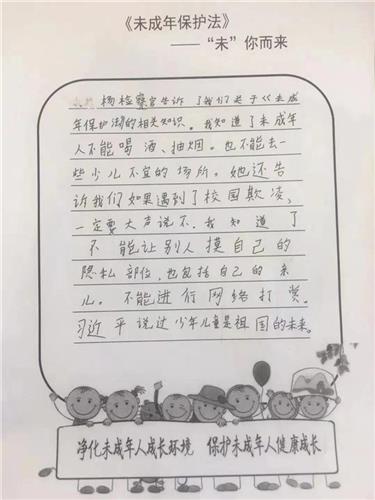 《未成年保护法》
——“未”你而来
杨检察官告诉了我们关于《未成
年保护法》的相关知识。我知道了未成年
人不能喝酒、抽烟。也不能去一
些少儿不宜的场所。她还告
诉我们如果遇到了校园欺凌,
一定要大声说不.我知道了
不能让别人摸自己的
隐私部位,也包括自己的亲
儿。不能进行网络打赏。
习近平说过少年儿童是祖国的未来。
净化未成年人成长环境 保护未成年人健康成长